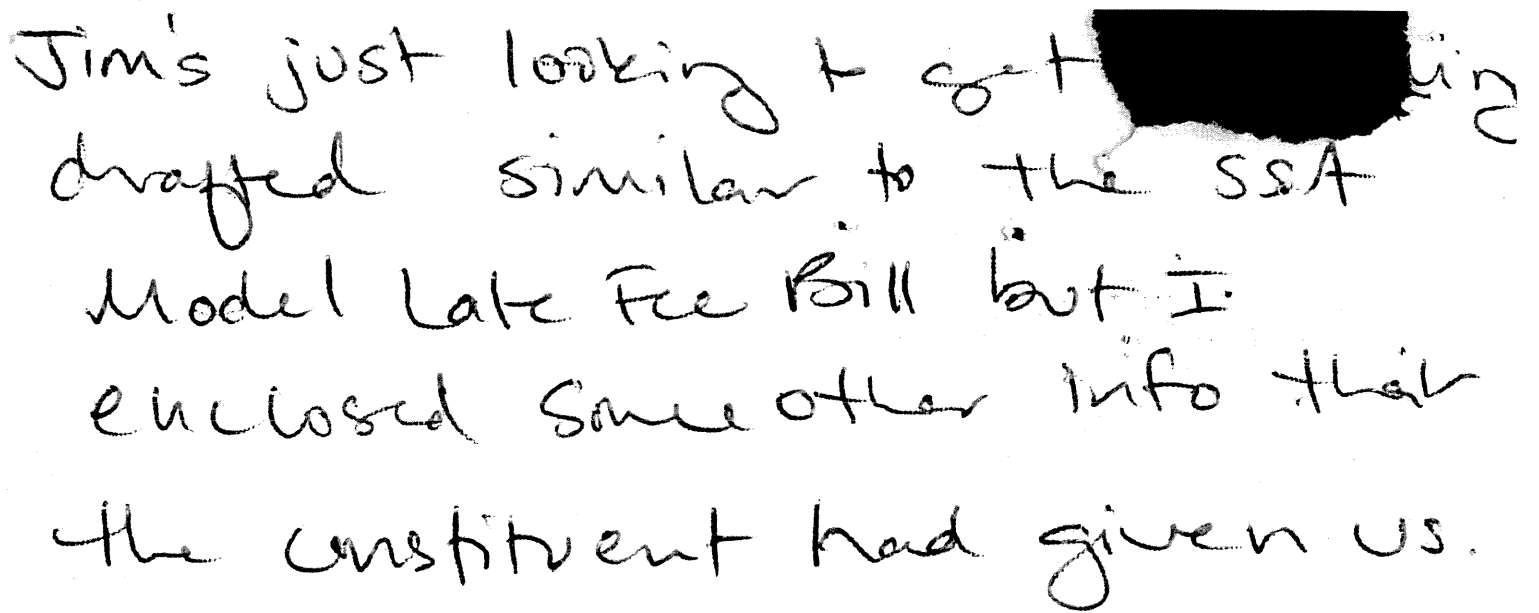 Jim's just looking to get
drafted similar to the SSA
Model Late Fee Bill but I
enclosed some other info that
the constituent had given us.